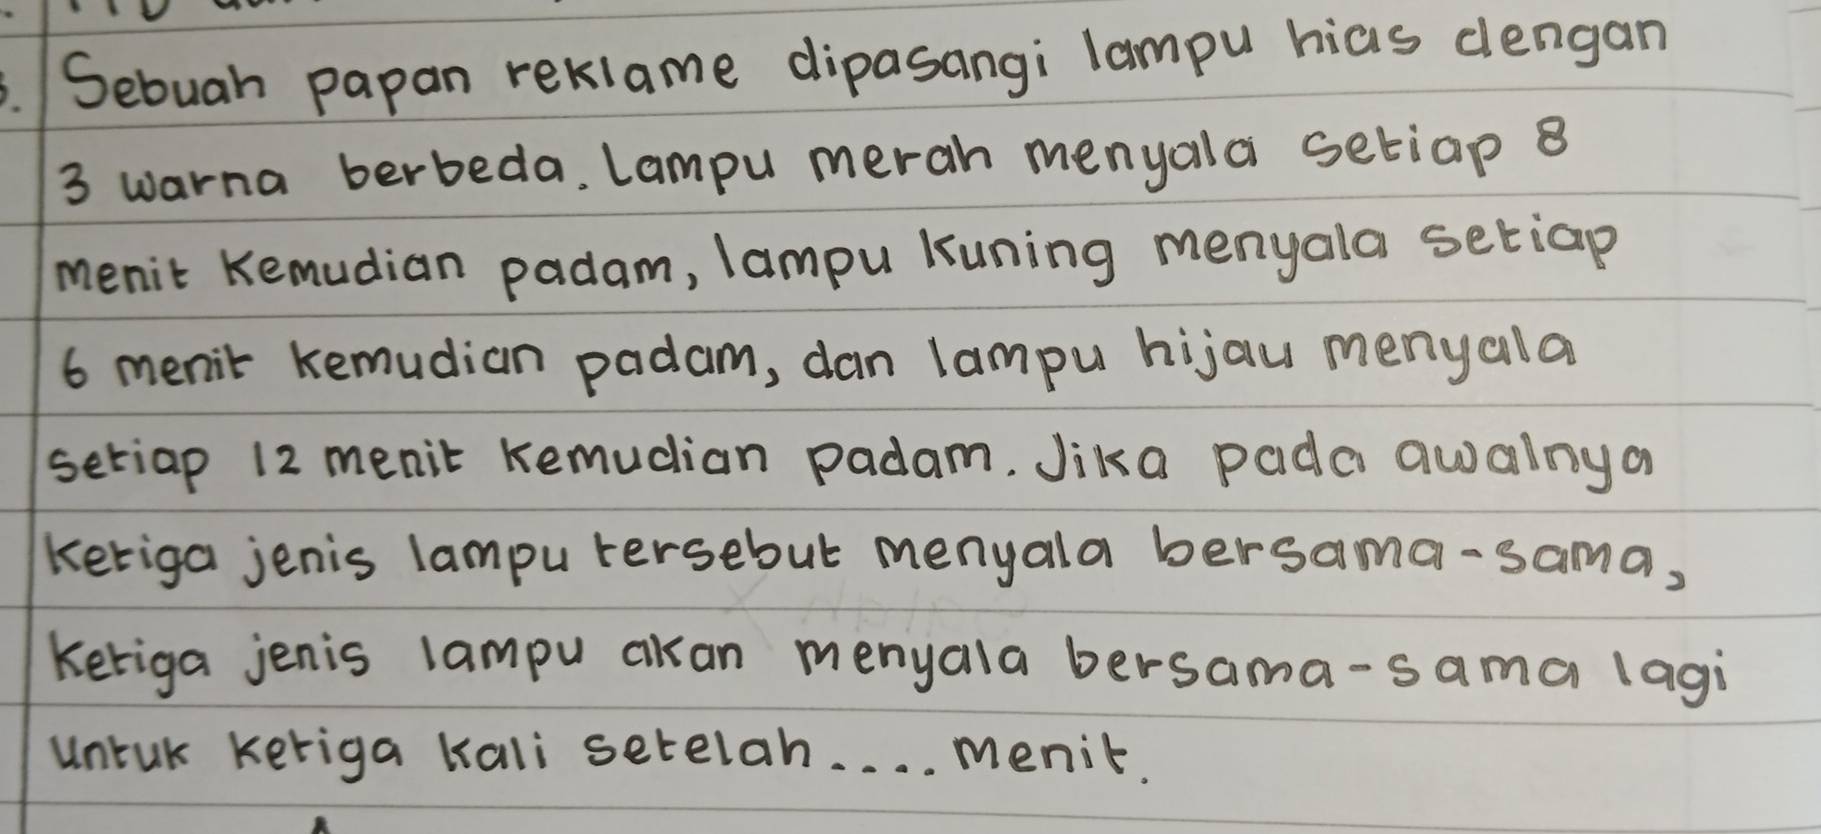 3. Sebuah papan reklame dipasangi lampu hias dengan
3 warna berbeda. Lampu merah menyala setiap 8
menit kemudian padam, lampu kuning menyala setiap
6 menit kemudian padam, dan lampu hijau menyala
setiap 12 menit kemudian padam. Jika pada awalnya
ketiga jenis lampu tersebut menyala bersama-sama,
ketiga jenis lampu akan menyala bersama-sama lagi
untuk ketiga kali setelah.... menit.